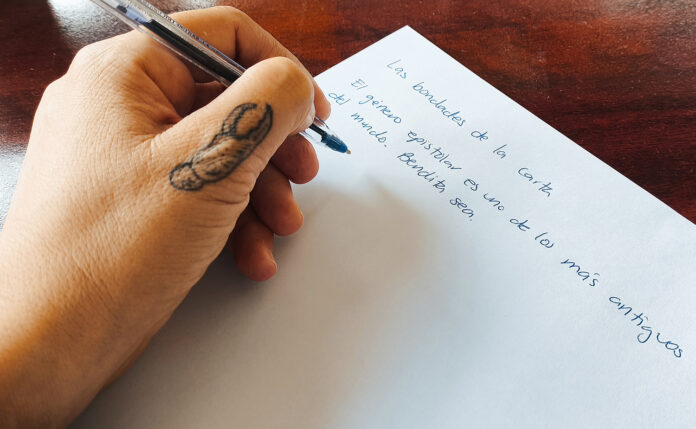 Las bondades de la carta
El género epistolar es uno de los más antiguos
del mundo. Bendita sea.